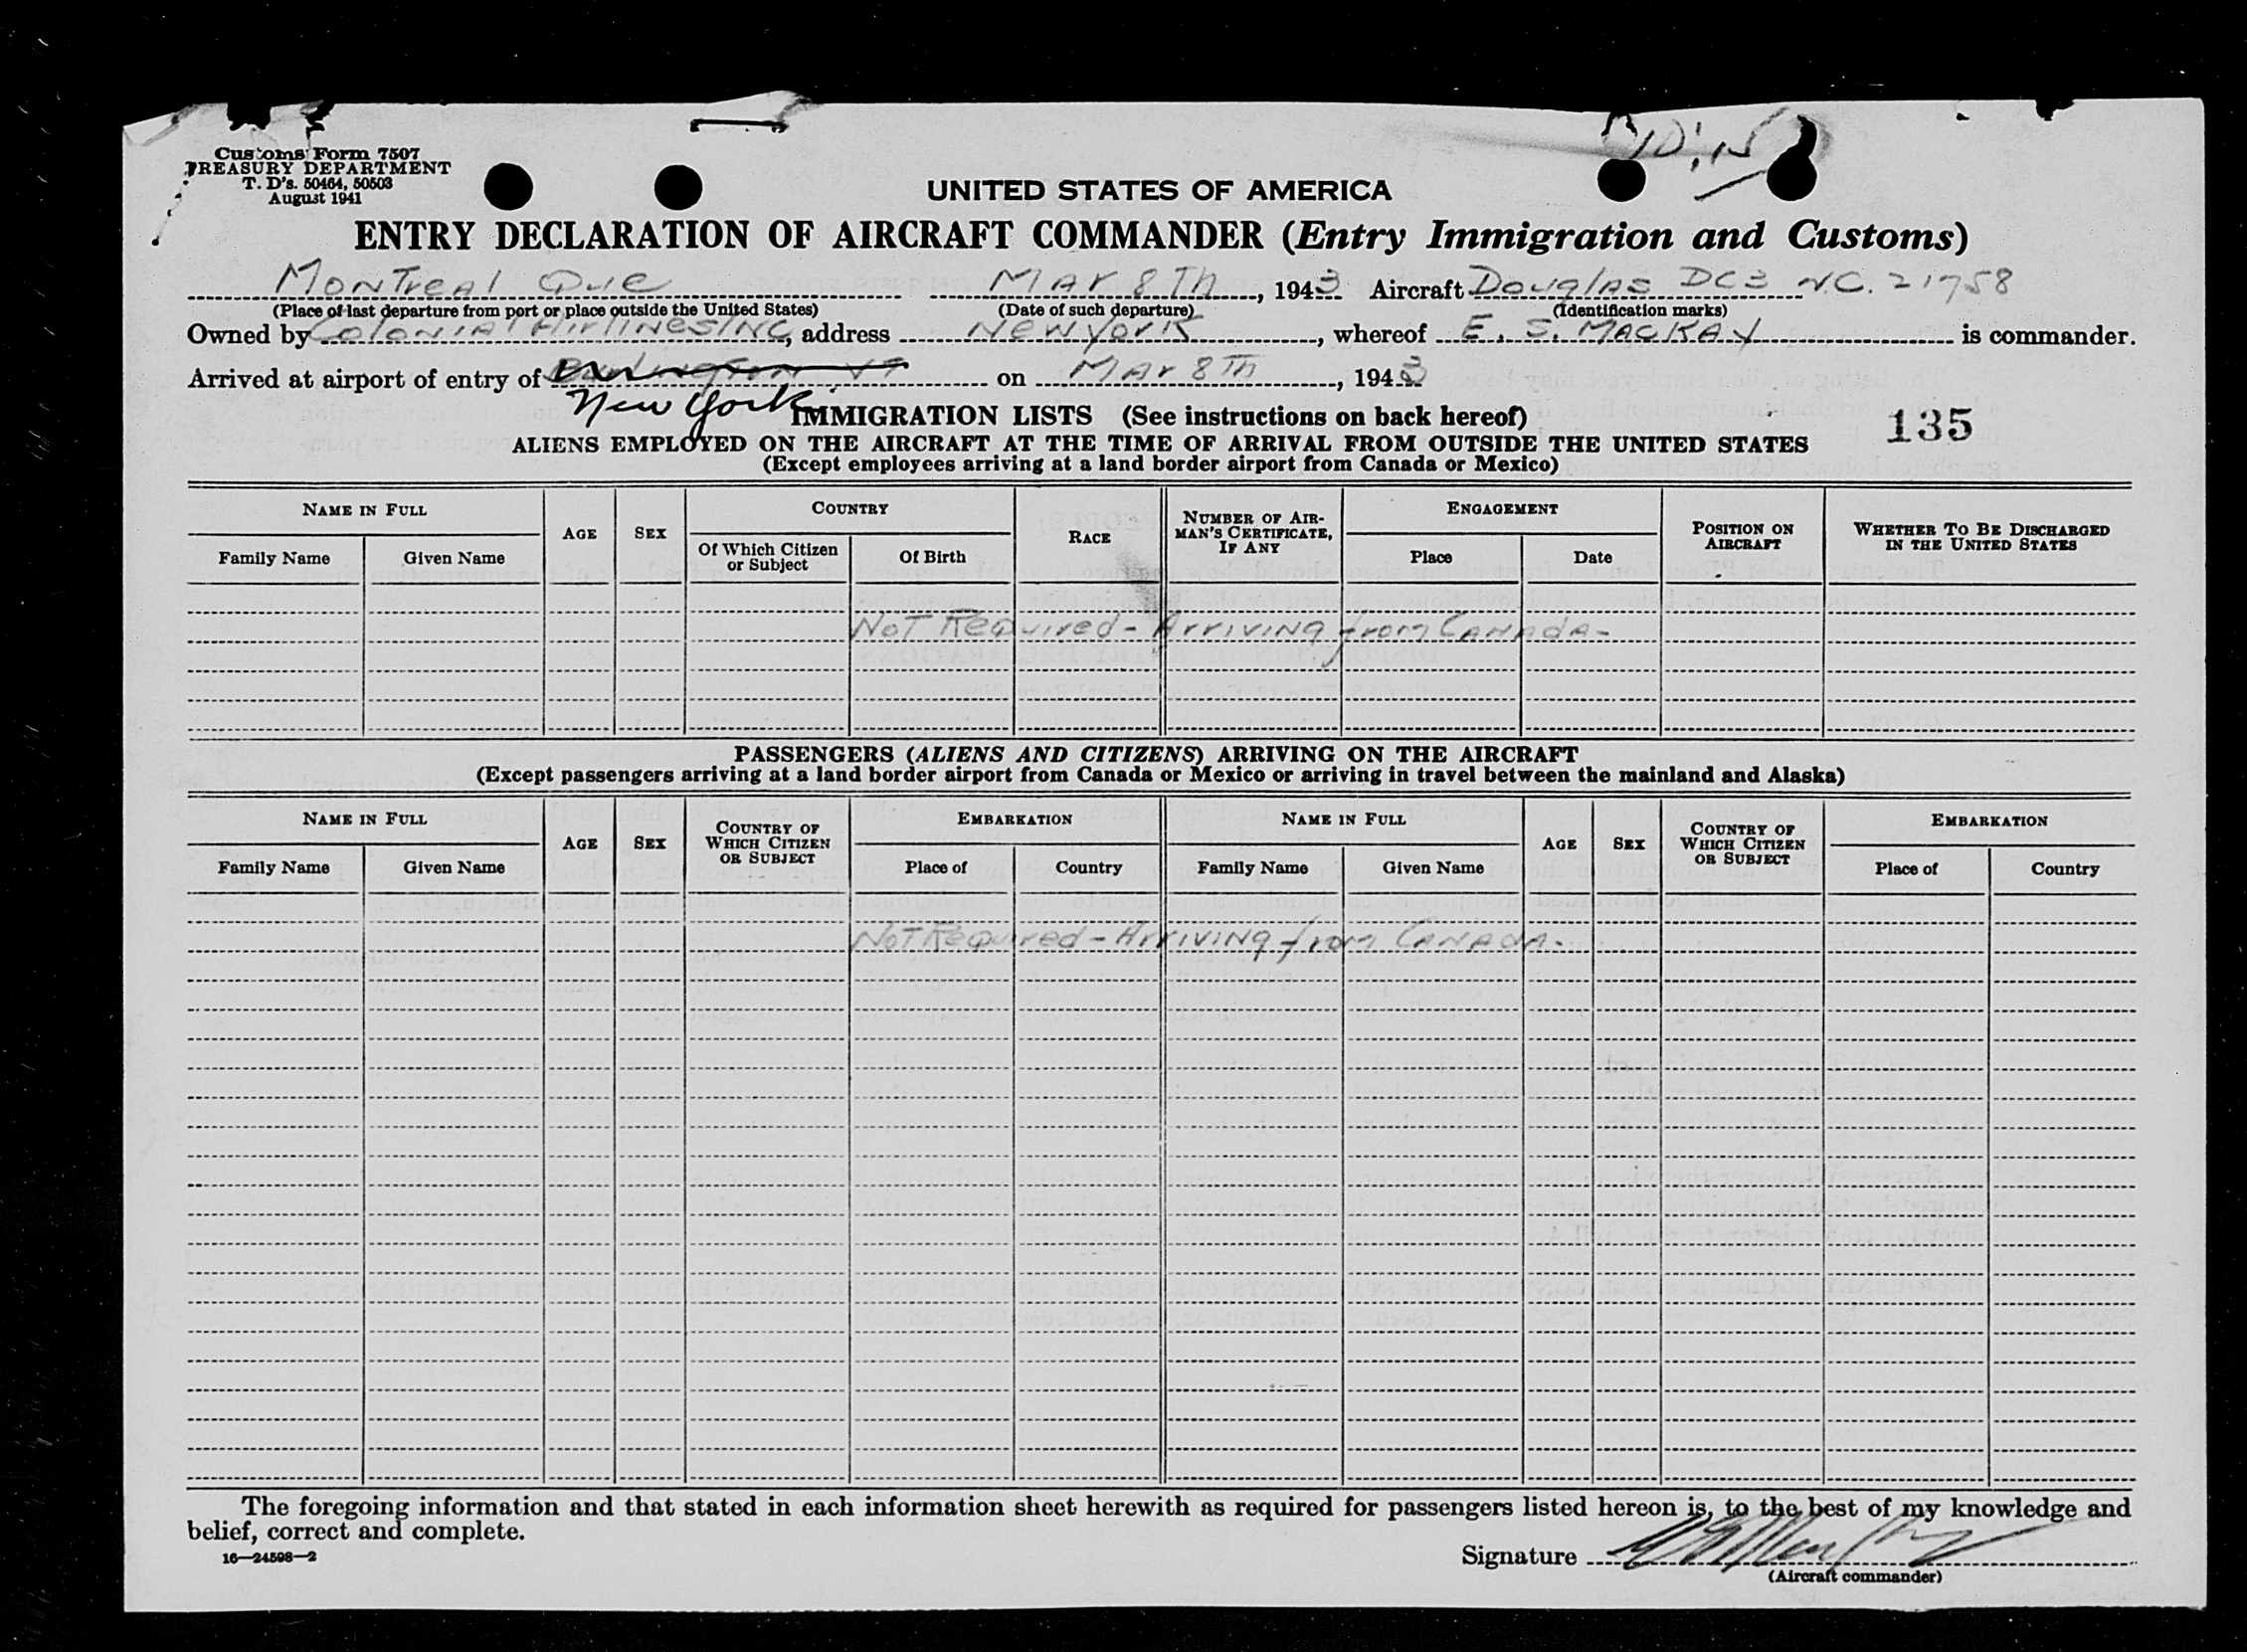 Customs Form 7507
TREASURY DEPARTMENT
T. D's. 50464, 50503
August 1941
UNITED STATES OF AMERICA
ENTRY DECLARATION OF AIRCRAFT COMMANDER (Entry Immigration and Customs)
Montreal Que Mar 8Th, 1943 Aircraft Douglas DC3 N.C. 21758
(Place of last departure from port or place outside the United States) (Date of such departure) (Identification marks)
Owned by Colonial Airlines Inc, address New York, whereof E. S. MacKay is commander.
Arrived at airport of entry of Burlington VT on Mar 8Th, 1943
New York
IMMIGRATION LISTS (See instructions on back hereof)
135
ALIENS EMPLOYED ON THE AIRCRAFT AT THE TIME OF ARRIVAL FROM OUTSIDE THE UNITED STATES
(Except employees arriving at a land border airport from Canada or Mexico)
NAME IN FULL AGE SEX COUNTRY RACE NUMBER OF AIRMAN'S CERTIFICATE, IF ANY ENGAGEMENT POSITION ON AIRCRAFT WHETHER TO BE DISCHARGED IN THE UNITED STATES
Family Name Given Name Of Which Citizen or Subject Of Birth Place Date
Not Required - Arriving from Canada -
PASSENGERS (ALIENS AND CITIZENS) ARRIVING ON THE AIRCRAFT
(Except passengers arriving at a land border airport from Canada or Mexico or arriving in travel between the mainland and Alaska)
NAME IN FULL AGE SEX COUNTRY OF WHICH CITIZEN OR SUBJECT EMBARKATION NAME IN FULL AGE SEX COUNTRY OF WHICH CITIZEN OR SUBJECT EMBARKATION
Family Name Given Name Place of Country Family Name Given Name Place of Country
Not Required - Arriving from Canada.
The foregoing information and that stated in each information sheet herewith as required for passengers listed hereon is, to the best of my knowledge and
belief, correct and complete.
16—24598—2
Signature
(Aircraft commander)